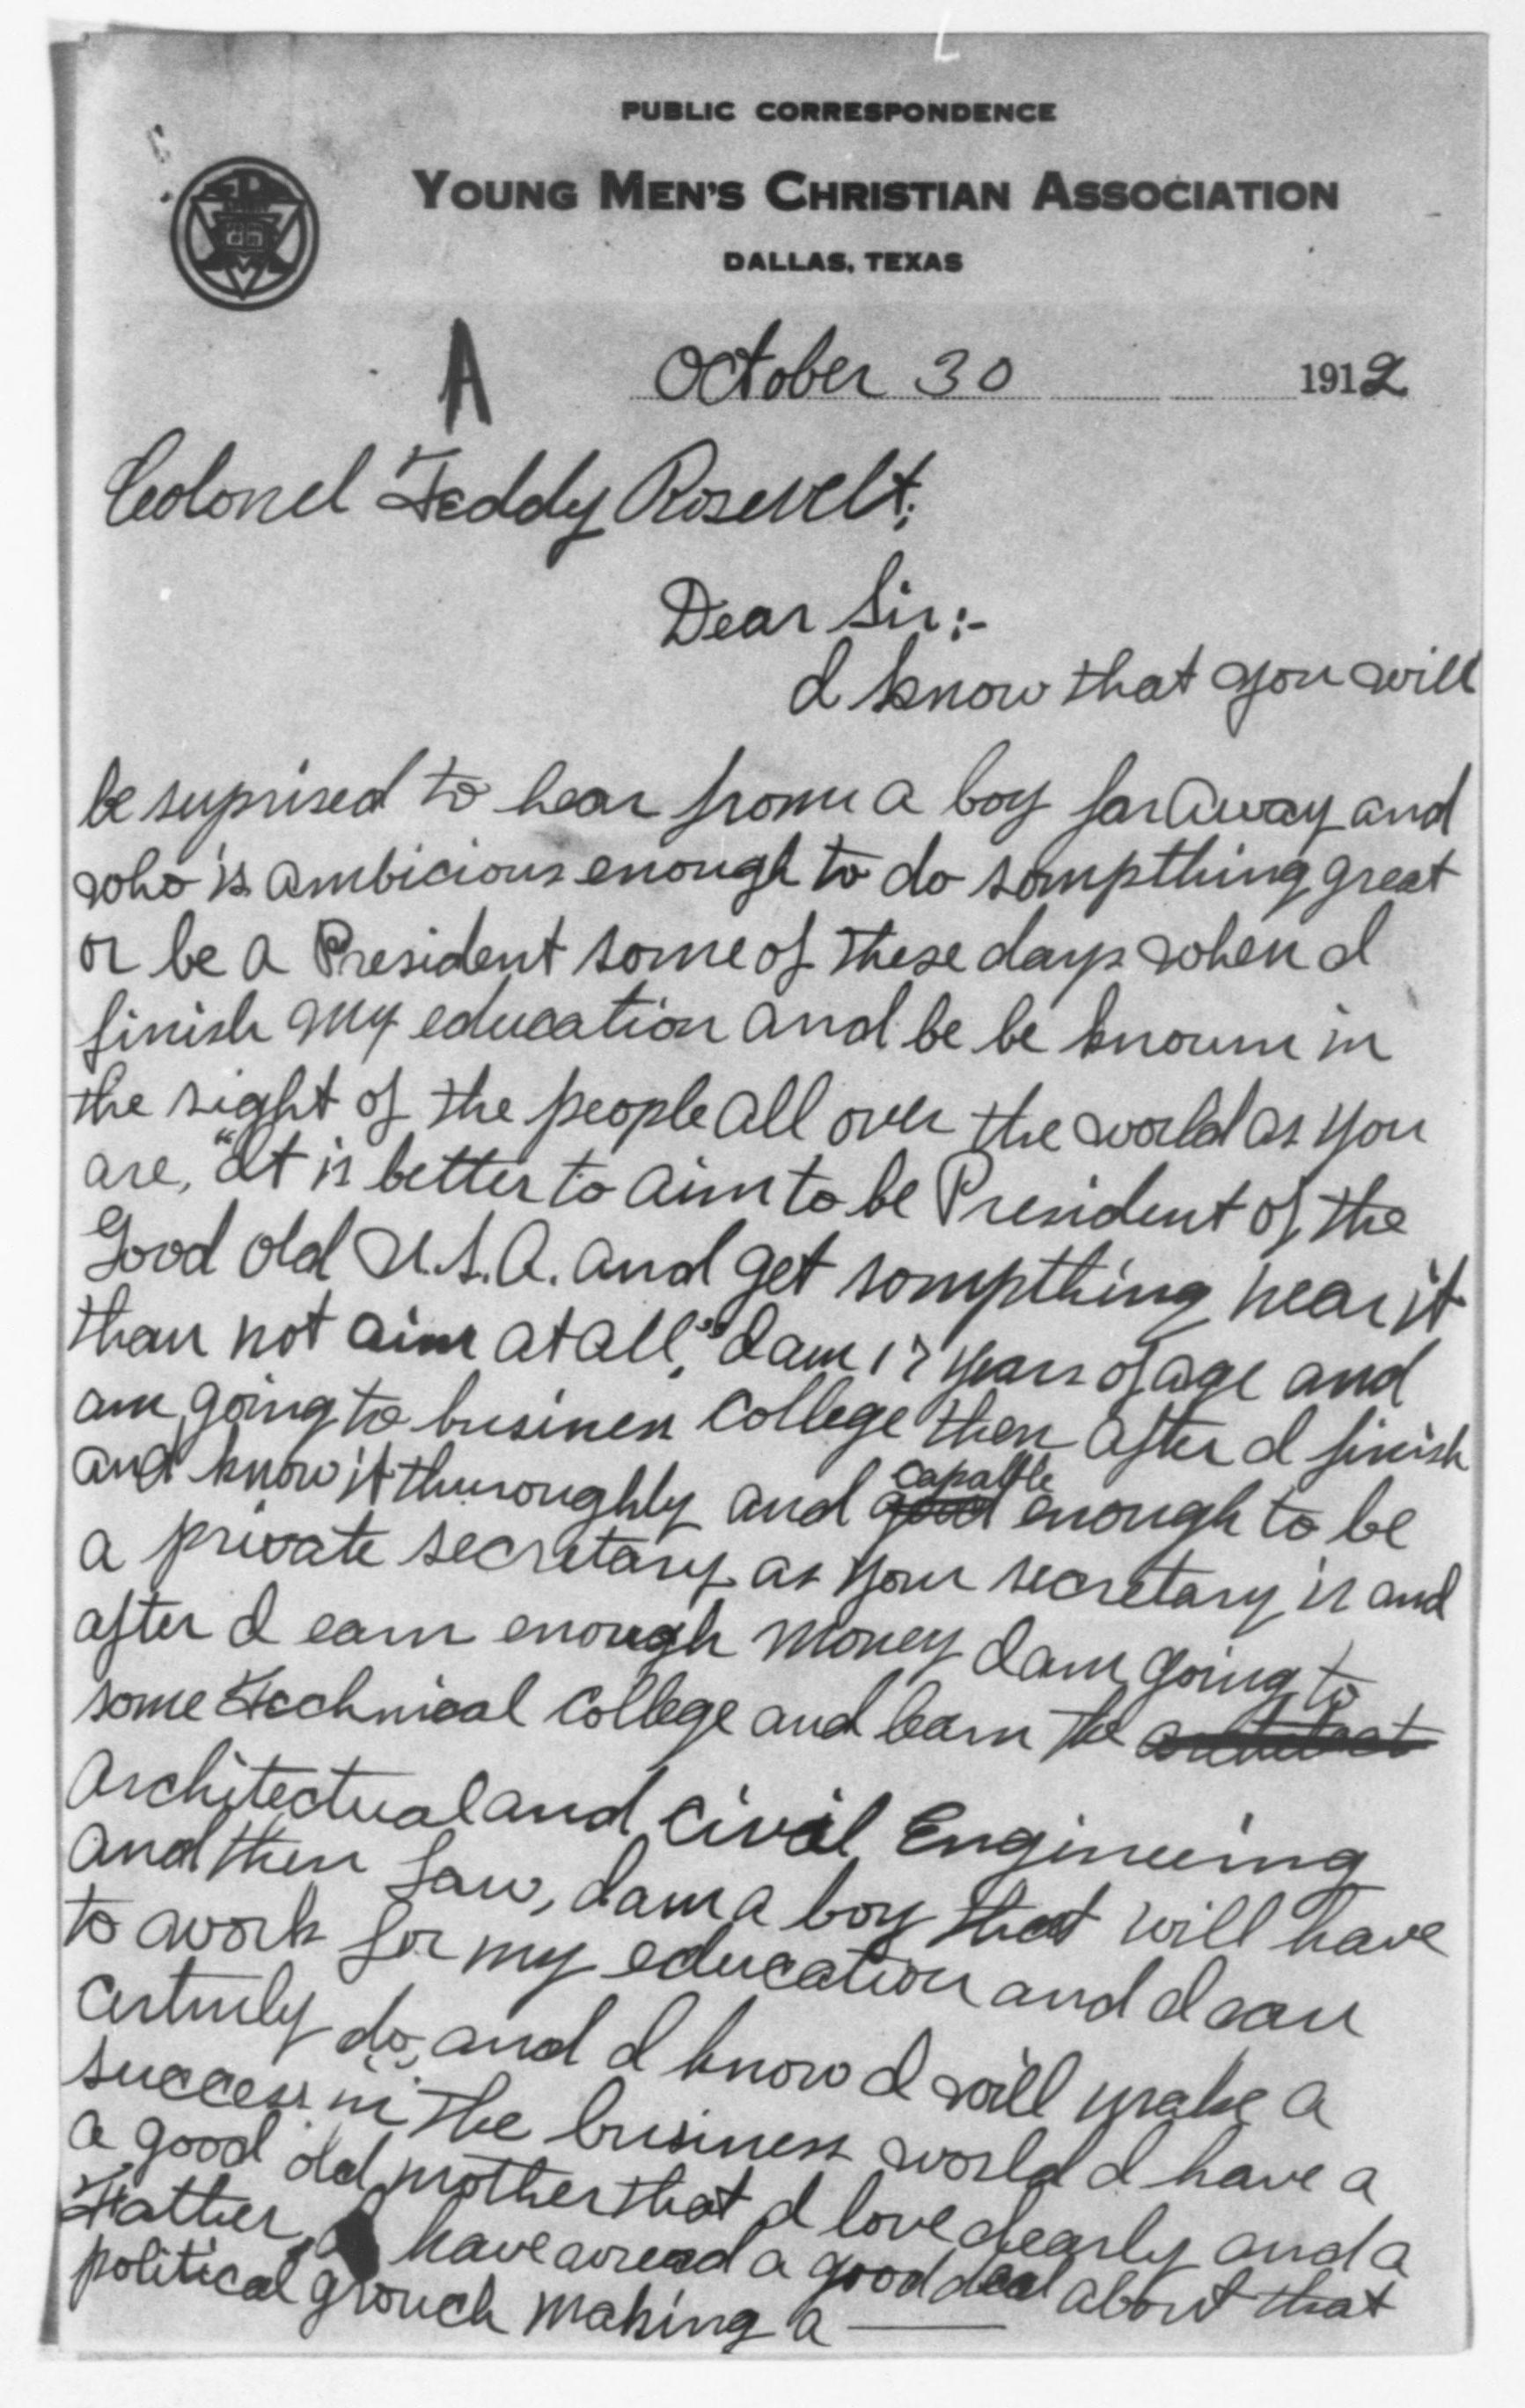 PUBLIC CORRESPONDENCE
YOUNG MEN'S CHRISTIAN ASSOCIATION
DALLAS, TEXAS
A October 30 1912
Colonel Teddy Rosevelt;
Dear Sir:-
I know that you will
be suprised to hear from a boy far away and
who is ambicious enough to do sompthing great
or be a President some of these days when I
finish my education and be be knowm in
the sight of the people all over the world as you
are, "It is better to aim to be President of the
Good old U.S.A. and get sompthing near it
than not aim at all," I am 17 years of age and
am going to business College then after I finish
and know it thuroughly and good capable enough to be
a private secretary as your secretary is and
after I earn enough money I am going to
some Technical College and learn the architect
Architectual and Civil Engineering
and then Law, I am a boy that will have
to work for my education and I can
certinly do, and I know I will make a
success in the business world I have a
a good old mother that I love dearly and a
Father, I have aread a good deal about that
political grouch making a ——